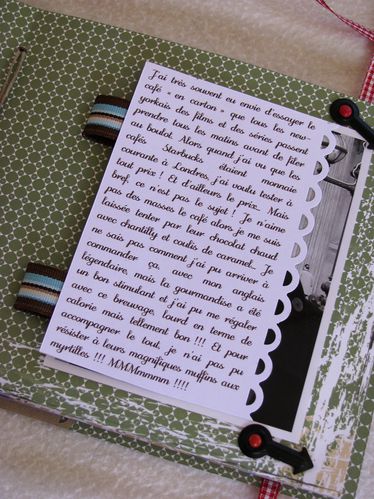 J'ai très souvent eu envie d'essayer le
café « en carton » que tous les new-
yorkais des films et des séries passent
prendre tous les matins avant de filer
au boulot. Alors quand j'ai vu que les
cafés Starbucks étaient monnaie
courante à Londres, j'ai voulu tester à
tout prix ! Et d'ailleurs le prix... Mais
bref, ce n'est pas le sujet ! Je n'aime
pas des masses le café alors je me suis
laissée tenter par leur chocolat chaud
avec chantilly et coulis de caramel. Je
ne sais pas comment j'ai pu arriver à
commander ça, avec mon anglais
légendaire, mais la gourmandise a été
un bon stimulant et j'ai pu me régaler
avec ce breuvage, lourd en terme de
calorie mais tellement bon !!! Et pour
accompagner le tout, je n'ai pas pu
résister à leurs magnifiques muffins aux
myrtilles !!! MMMmmmm !!!!